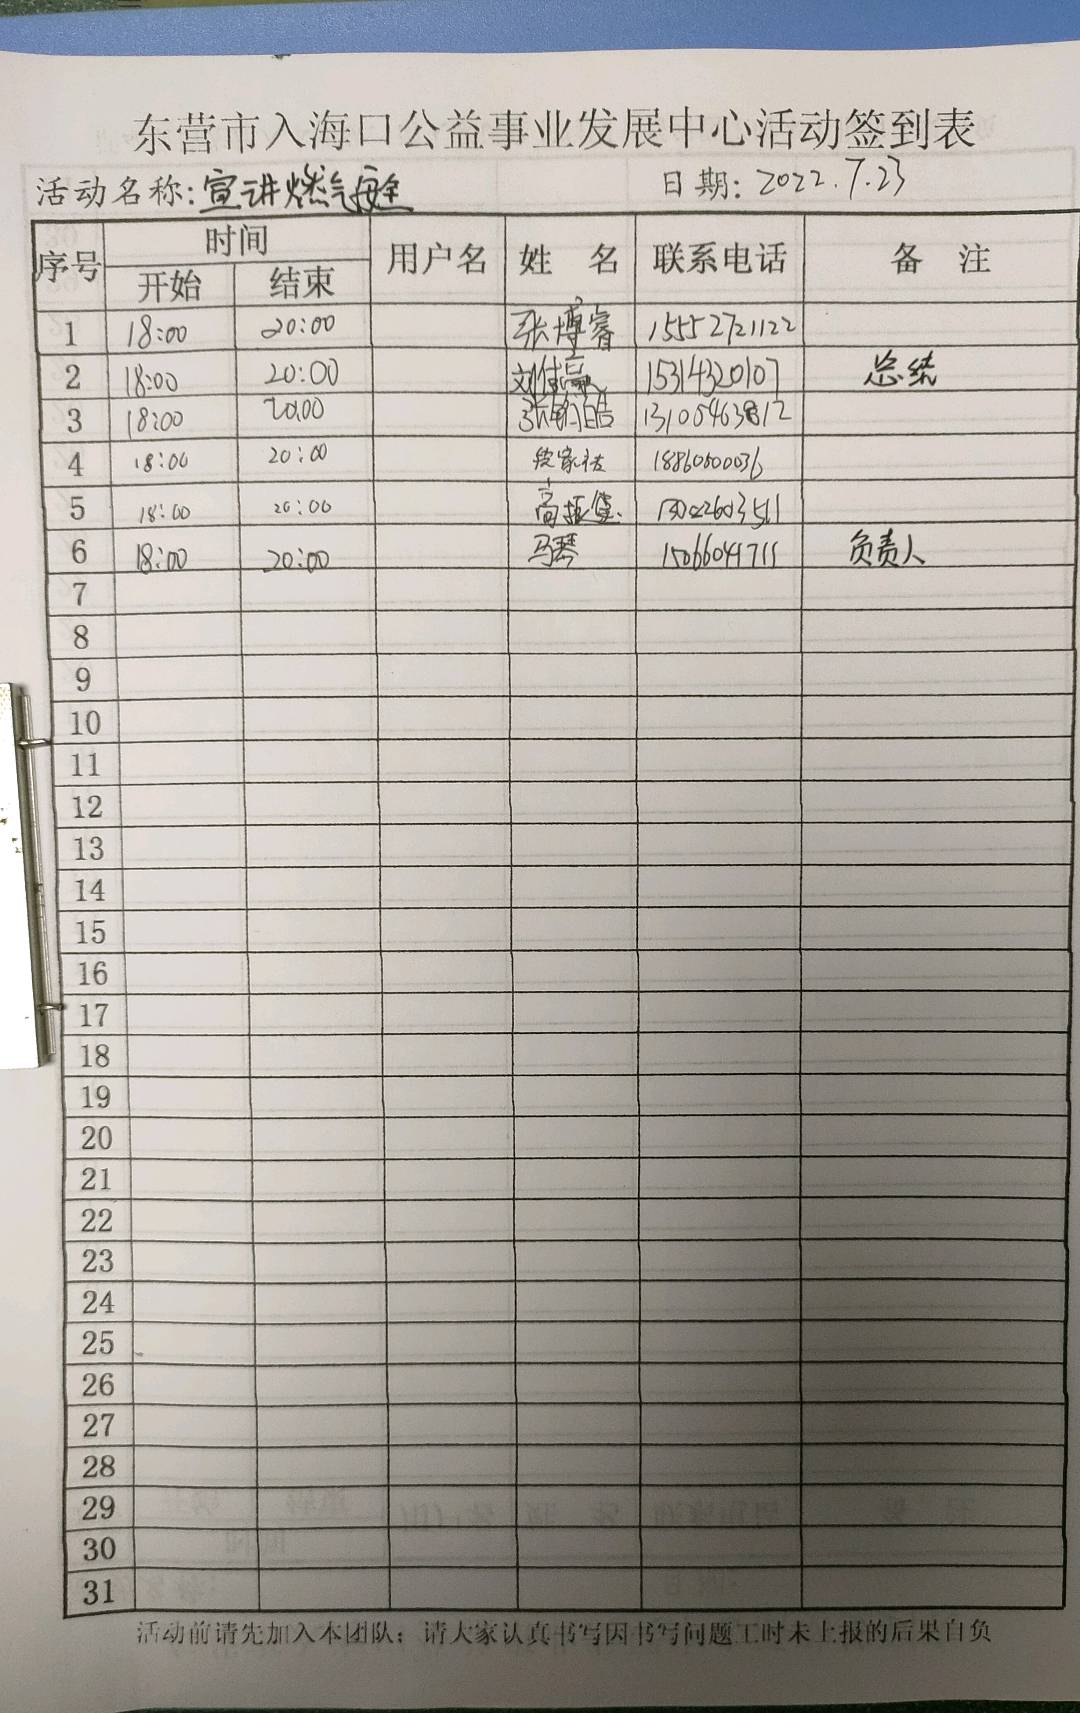 东营市入海口公益事业发展中心活动签到表
活动名称:宣讲燃气安全 日期:2022.7.23
序号 时间 用户名 姓名 联系电话 备注
开始 结束
1 18:00 20:00 张博睿 15552721122
2 18:00 20:00 刘佳赢 15314320107 总结
3 18:00 20:00 13105463812
4 18:00 20:00 18860500036
5 18:00 20:00 高振堡
6 18:00 20:00 马琴 15066041711 负责人
7
8
9
10
11
12
13
14
15
16
17
18
19
20
21
22
23
24
25
26
27
28
29
30
31
活动前请先加入本团队;请大家认真书写因书写问题工时未上报的后果自负